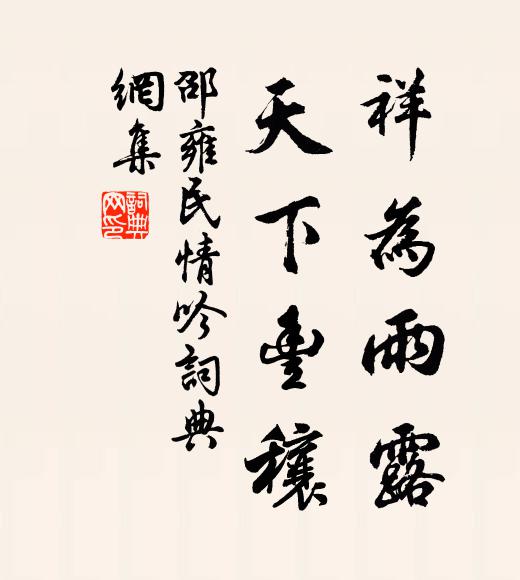 祥為雨露
天下豊穰
邵雍民情吟詞典
網集
詞典
网印